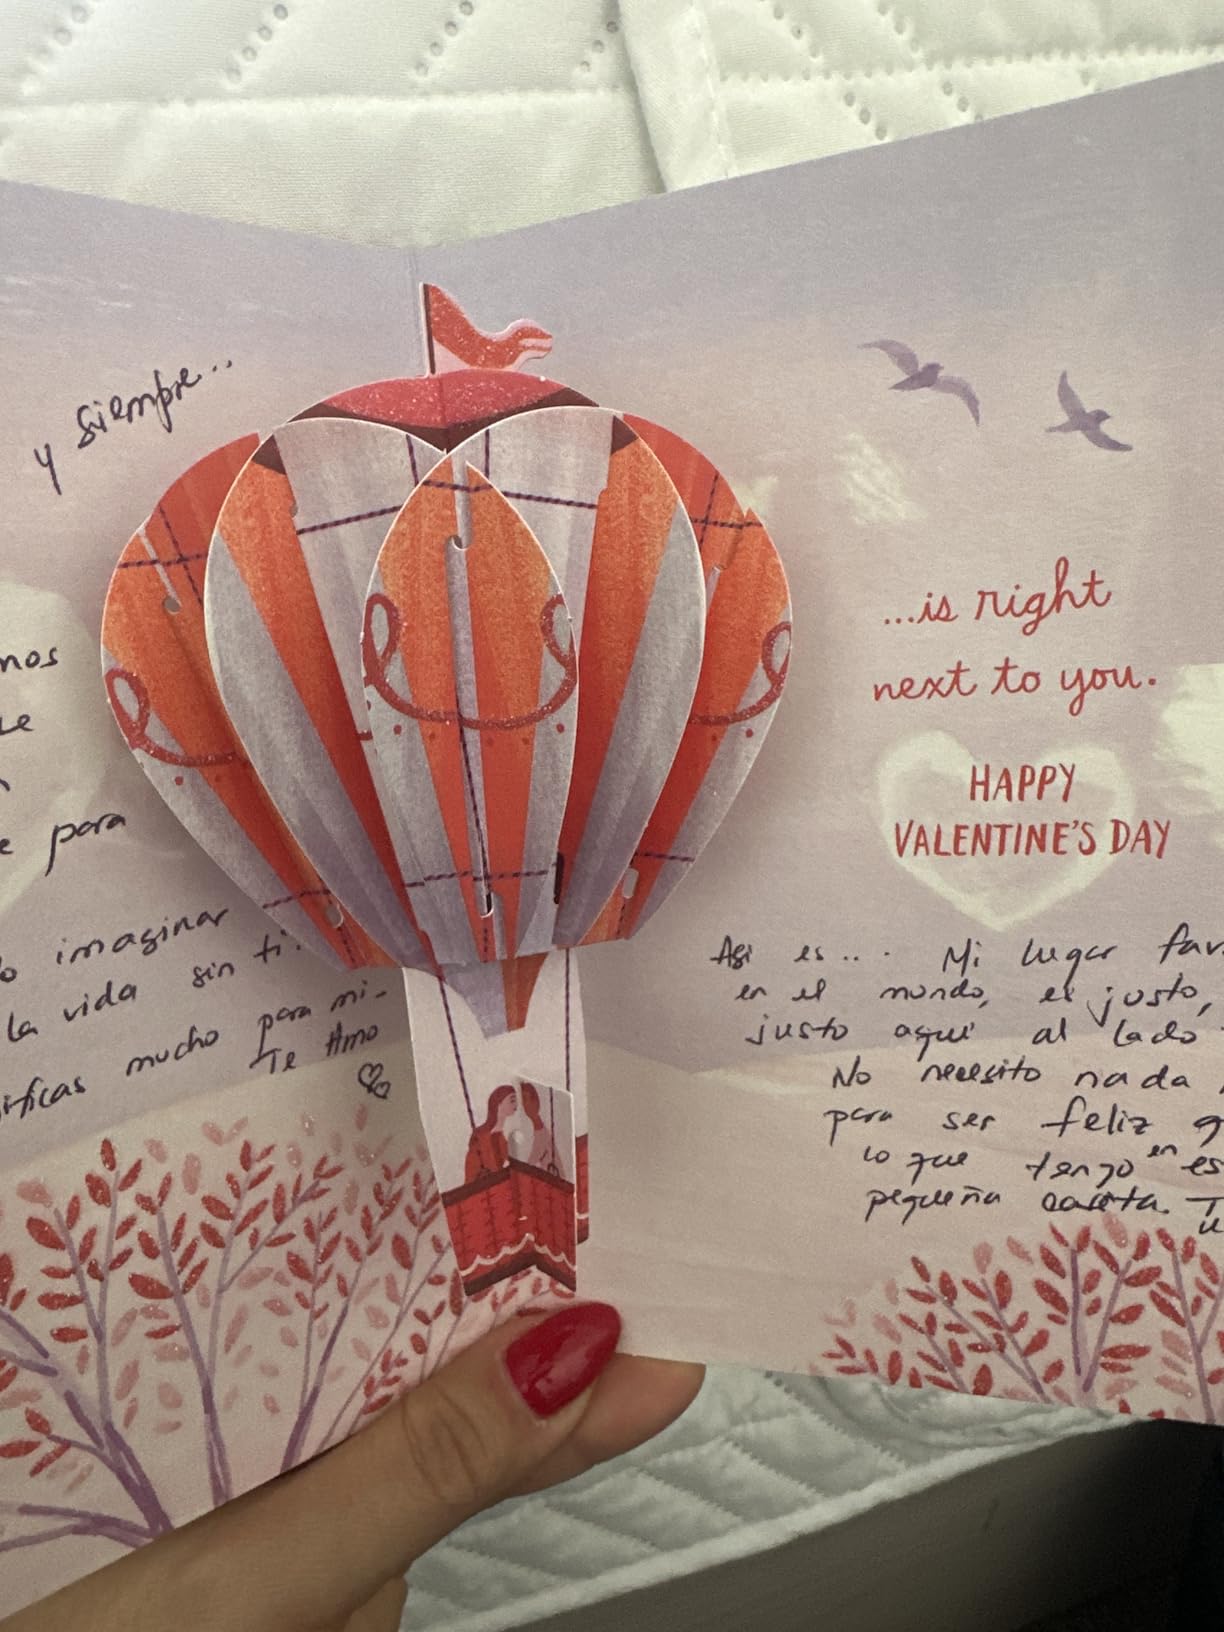 y siempre...
para
imaginar
la vida sin ti.
mucho para mi.
Te Amo
...is right
next to you.
HAPPY
VALENTINE'S DAY
Asi es... Mi lugar
en el mundo, es justo,
justo aqui al lado
No necesito nada
para ser feliz
lo que tengo en
pequeña